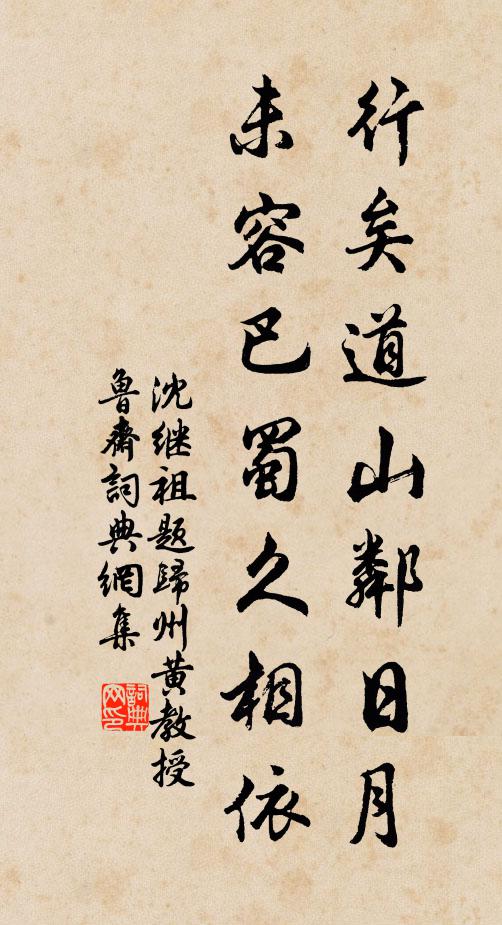 行矣道山鄰日月
未容巴蜀久相依
沈继祖题歸州黄教授
魯齋詞典網集
詞典
网印